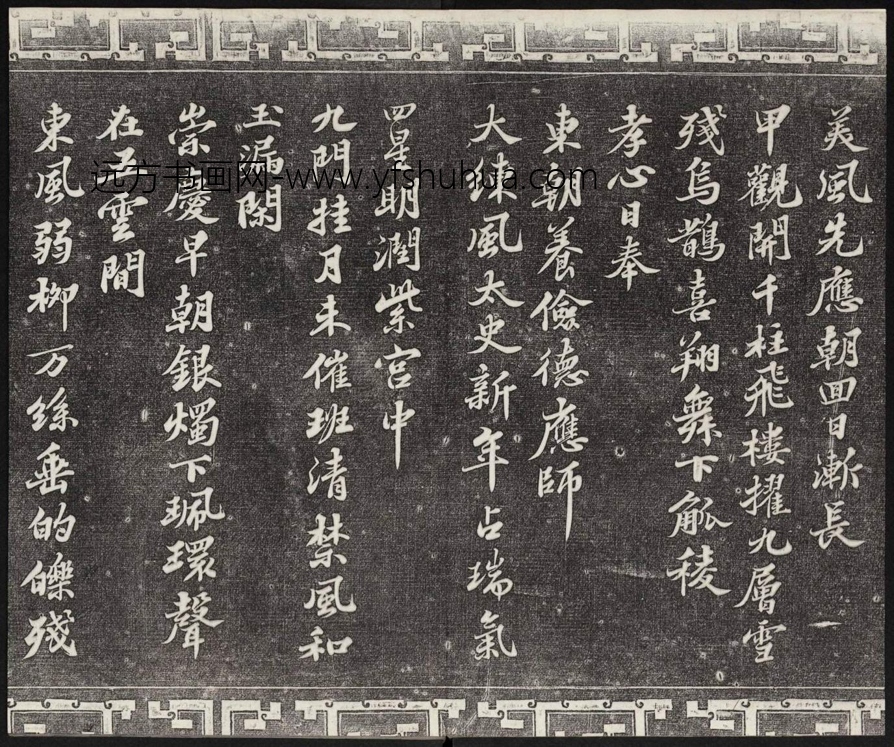 美風先應朝回日漸長 一
甲觀開千柱飛樓擢九層雪
殘烏鵲喜翔舞下觚稜
孝心日奉
東朝養儉德應師
大練風太史新年占瑞氣
四星明潤紫宮中
九門挂月未催班清禁風和
玉漏閑
崇慶早朝銀燭下珮環聲
在五雲間
東風弱柳万絲垂的皪殘
远方书画网-www.yfshuhua.com